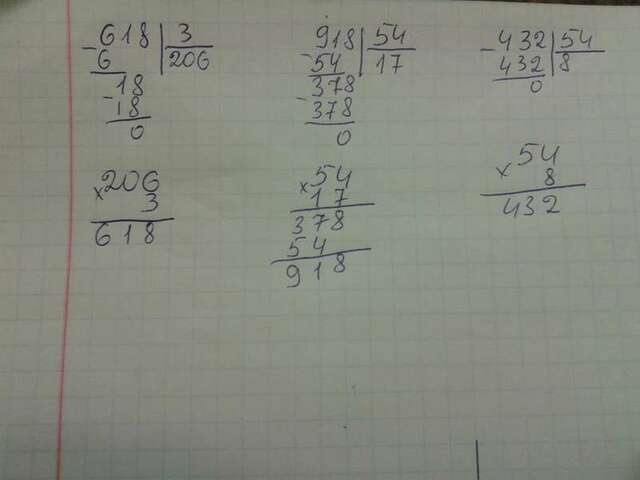 -618 | 3
6 | 206
18
-18
0
×206
3
618
-918 | 54
54 | 17
378
-378
0
×54
17
378
54
918
-432 | 54
432 | 8
0
×54
8
432